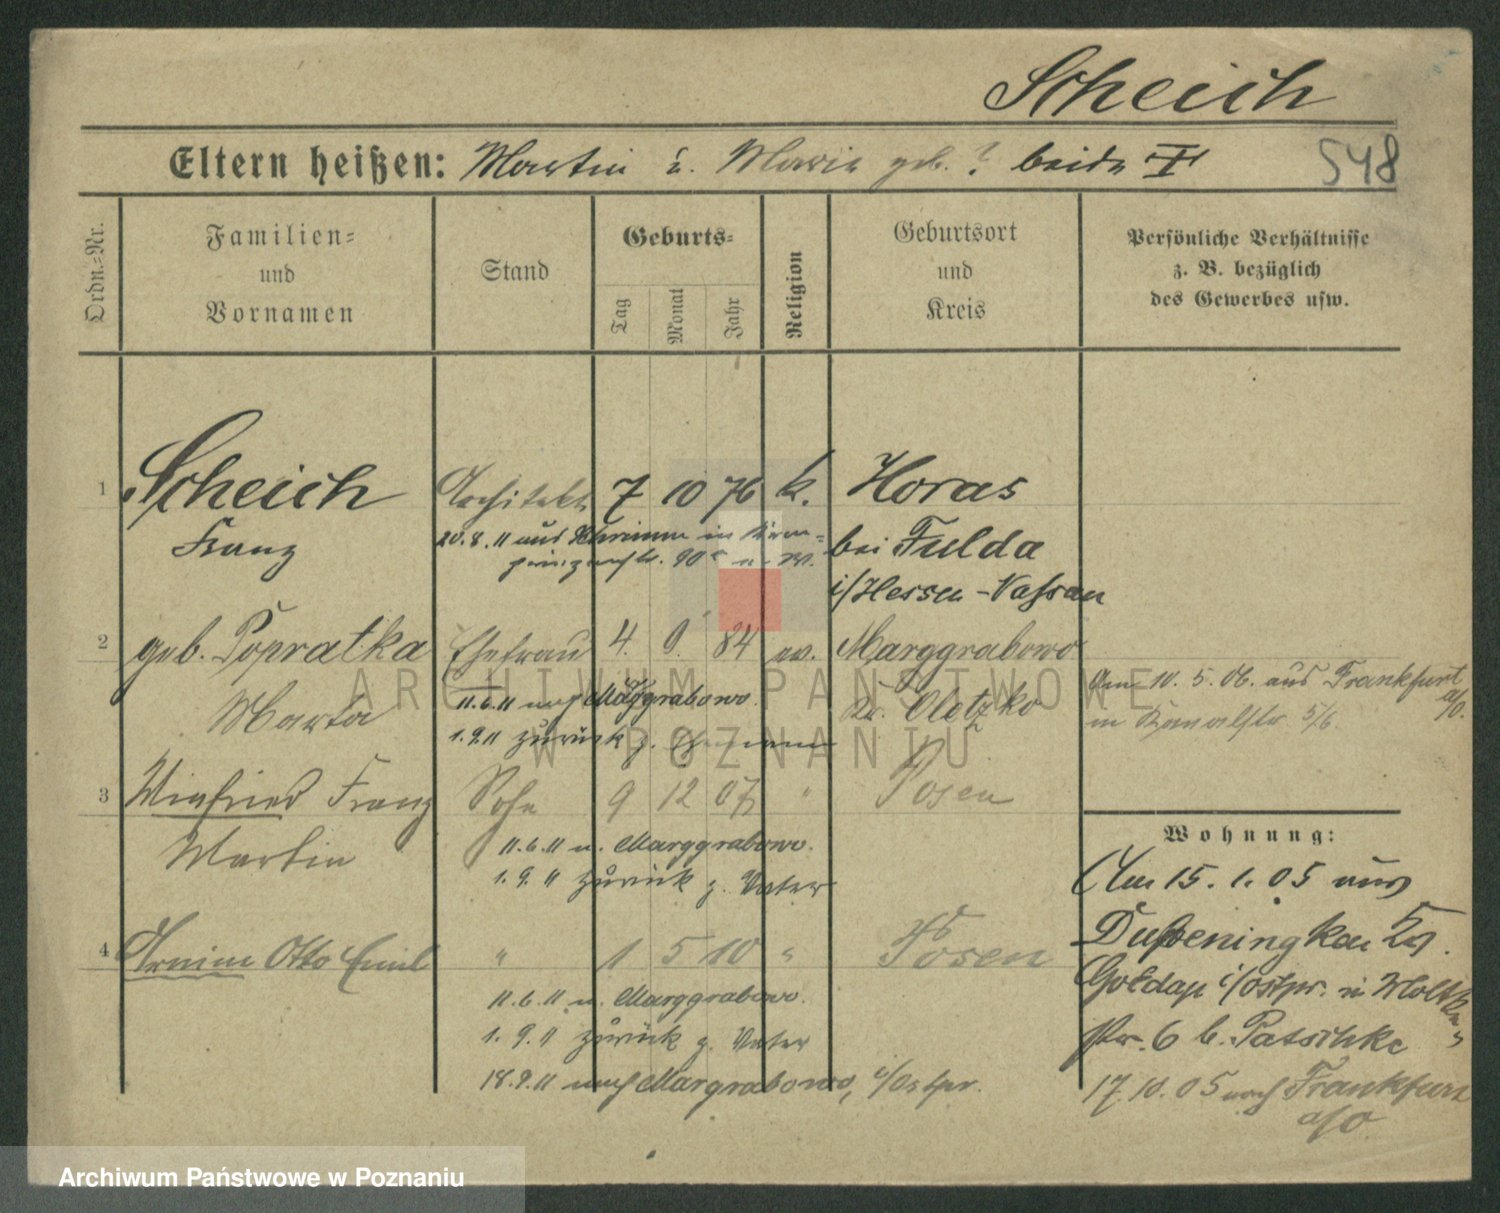 Scheich
Eltern heißen: Martin u. Marie geb. ? beide †
548
Ordn.-Nr.
Familien-
und
Vornamen
Stand
Geburts-
Tag
Monat
Jahr
Religion
Geburtsort
und
Kreis
Persönliche Verhältnisse
z. B. bezüglich
des Gewerbes usw.
1 Scheich Architekt 7 10 76 k. Horas
Franz
20.8.11 aus Schrimm in Kron-
prinzenstr. 90
bei Fulda
i/Hessen-Nassau
2 geb. Popratka Ehefrau 4. 9. 84 ev. Marggrabowo
Marta
11.6.11 nach Marggrabowo
Kr. Oletzko
1.9.11 zurück z. Ehemann
Am 10. 5. 06. aus Frankfurt
a/O.
in Kanalstr. 5/6
3 Winfried Franz Sohn 9 12 07 " Posen
Martin
11.6.11 n. Marggrabowo.
1. 9. 11 zurück z. Vater
4 Armin Otto Emil " 1 5 10 " Posen
11.6.11 n. Marggrabowo.
1. 9. 11 zurück z. Vater
18.9.11 nach Margrabowo, i/Ostpr.
Wohnung:
Am 15. 1. 05 aus
Dubeningken Kr.
Goldap i/Ostpr. in Moltke-
str. 6 b. Patschke
17. 10. 05 nach Frankfurt
a/O
ARCHIWUM PAŃSTWOWE
W POZNANIU
Archiwum Państwowe w Poznaniu